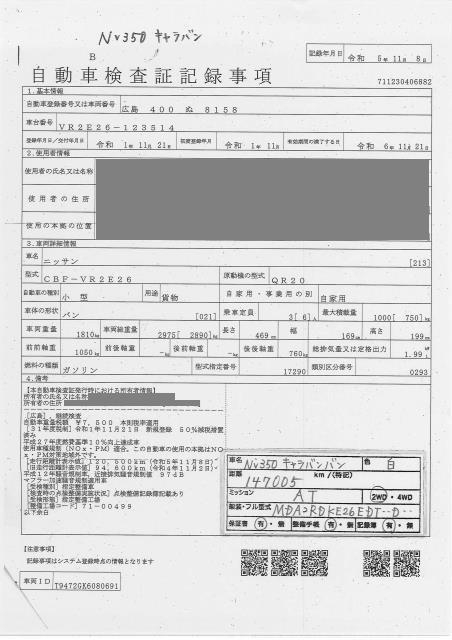 NV350 キャラバン
B
記録年月日 令和 5年11月 8日
自動車検査証記録事項
711230406882
1.基本情報
自動車登録番号又は車両番号 広島 400 ぬ 8158
車台番号 VR2E26-123514
登録年月日/交付年月日 令和 1年11月21日 初度登録年月 令和 1年11月 有効期間の満了する日 令和 6年11月21日
2.使用者情報
使用者の氏名又は名称
使用者の住所
使用の本拠の位置
3.車両詳細情報
車名 ニッサン [213]
型式 CBF-VR2E26 原動機の型式 QR20
自動車の種別 小型 用途 貨物 自家用・事業用の別 自家用
車体の形状 バン [021] 乗車定員 3[ 6]人 最大積載量 1000[ 750]kg
車両重量 1810kg 車両総重量 2975[ 2890]kg 長さ 469cm 幅 169cm 高さ 199cm
前前軸重 1050kg 前後軸重 -kg 後前軸重 -kg 後後軸重 760kg 総排気量又は定格出力 1.99L
燃料の種類 ガソリン 型式指定番号 17290 類別区分番号 0293
4.備考
【本自動車検査証発行時における所有者情報】
所有者の氏名又は名称
所有者の住所
[広島],継続検査
自動車重量税額 ¥7,500 本則税率適用
[31年度税制]令和1年11月21日 新規登録 50%減税措置
済み
平成27年度燃費基準10%向上達成車
使用車種規制(NOx・PM)適合,この自動車の使用の本拠はNO
x・PM対策地域外です。
[走行距離計表示値]120,500km(令和5年11月8日)
[旧走行距離計表示値]94,600km(令和4年11月2日)
平成12年騒音規制車、近接排気騒音規制値 97dB
マフラー加速騒音規制適用車
[受検種別]指定整備車
[検査時の点検整備実施状況]点検整備記録簿記載あり
[受検形態]指定整備工場
[整備工場コード]71-00499
以下余白
車名 NV350キャラバンバン 色 白
距離 147005 km/(特記)
ミッション AT 2WD・4WD
類装・フル型式 MDA2RDKE26EDT--D--
保証書 有・無 整備手帳 有・無 記録簿 有・無
【注意事項】
記録事項はシステム登録時点の情報となります
車両ID T9472GK6080691